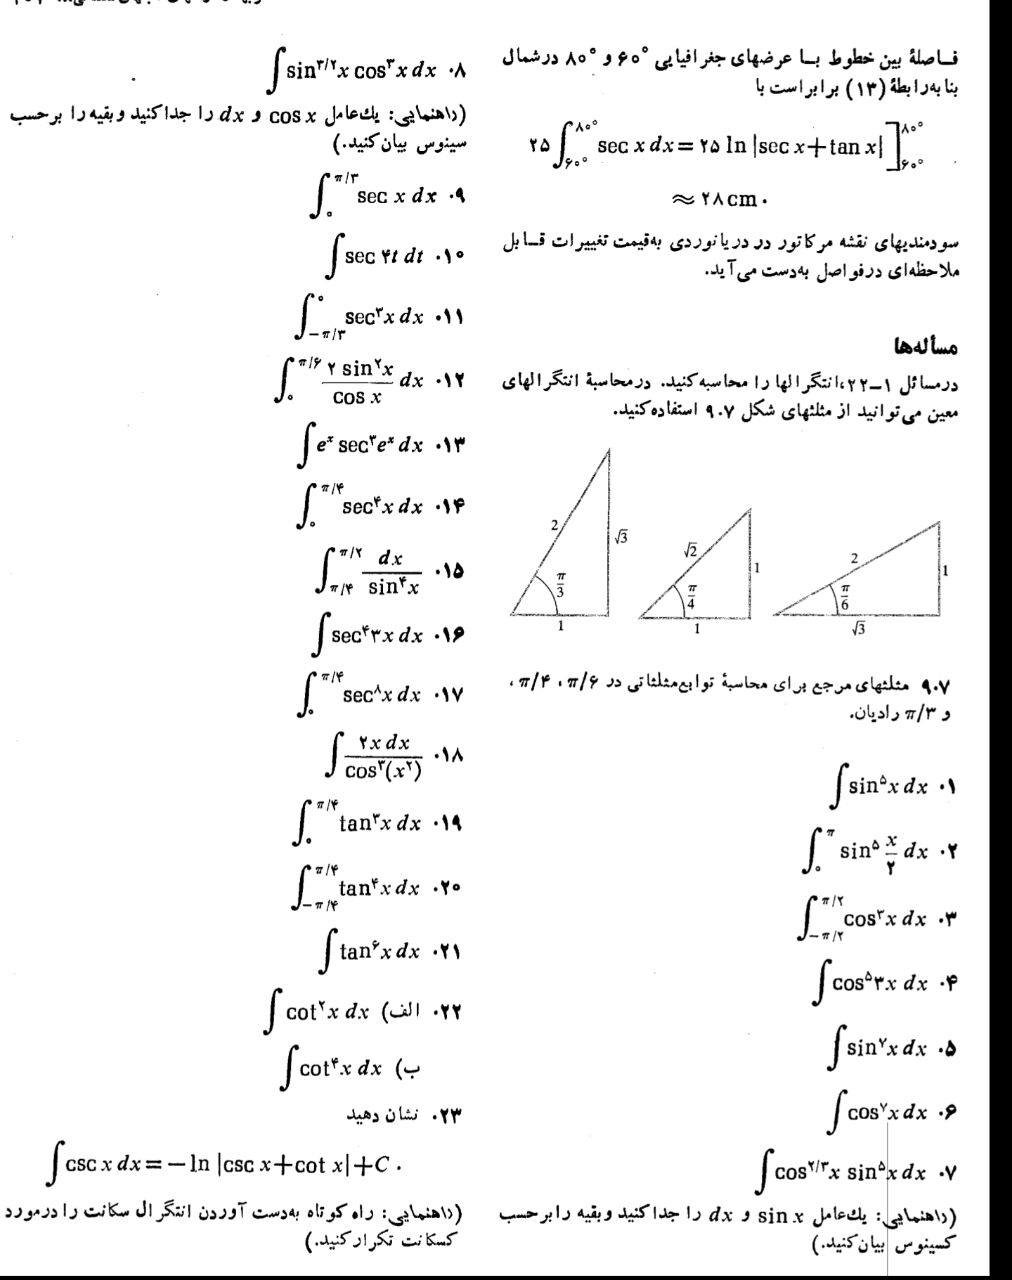 فاصلهٔ بین خطوط با عرضهای جغرافیایی ۶۰° و ۸۰° درشمال
بنا به‌رابطهٔ (۱۳) برابراست با
۲۵ ∫_{۶۰°}^{۸۰°} sec x dx = ۲۵ ln |sec x + tan x| ]_{۶۰°}^{۸۰°}
≈ ۲۸ cm .
سودمندیهای نقشه مرکاتور در دریانوردی به‌قیمت تغییرات قابل
ملاحظه‌ای درفواصل به‌دست می‌آید.
مسأله‌ها
درمسائل ۱–۲۲، انتگرالها را محاسبه‌کنید. درمحاسبهٔ انتگرالهای
معین می‌توانید از مثلثهای شکل ۹.۷ استفاده‌کنید.
2 √3 π/3 1
√2 1 π/4 1
2 1 π/6 √3
۹.۷ مثلثهای مرجع برای محاسبهٔ توابع‌مثلثاتی در π/۶ ، π/۴ ،
و π/۳ رادیان.
۱. ∫ sin^۵ x dx
۲. ∫_۰^π sin^۵ (x/۲) dx
۳. ∫_{−π/۲}^{π/۲} cos^۳ x dx
۴. ∫ cos^۵ ۳x dx
۵. ∫ sin^۷ x dx
۶. ∫ cos^۷ x dx
۷. ∫ cos^{۲/۳} x sin^۵ x dx
(راهنمایی: یك‌عامل sin x و dx را جداکنید وبقیه رابرحسب
کسینوس بیان‌کنید.)
۸. ∫ sin^{۳/۲} x cos^۳ x dx
(راهنمایی: یك‌عامل cos x و dx را جداکنید وبقیه‌را برحسب
سینوس بیان‌کنید.)
۹. ∫_۰^{π/۳} sec x dx
۱۰. ∫ sec ۴t dt
۱۱. ∫_{−π/۳}^۰ sec^۳ x dx
۱۲. ∫_۰^{π/۶} (۲ sin^۲ x / cos x) dx
۱۳. ∫ e^x sec^۳ e^x dx
۱۴. ∫_۰^{π/۴} sec^۴ x dx
۱۵. ∫_{π/۴}^{π/۲} dx / sin^۴ x
۱۶. ∫ sec^۴ ۳x dx
۱۷. ∫_۰^{π/۴} sec^۸ x dx
۱۸. ∫ ۲x dx / cos^۳(x^۲)
۱۹. ∫_۰^{π/۴} tan^۳ x dx
۲۰. ∫_{−π/۴}^{π/۴} tan^۴ x dx
۲۱. ∫ tan^۶ x dx
۲۲. الف) ∫ cot^۲ x dx
ب) ∫ cot^۴ x dx
۲۳. نشان دهید
∫ csc x dx = − ln |csc x + cot x| + C .
(راهنمایی: راه کوتاه به‌دست آوردن انتگرال سکانت را درمورد
کسکانت تکرارکنید.)